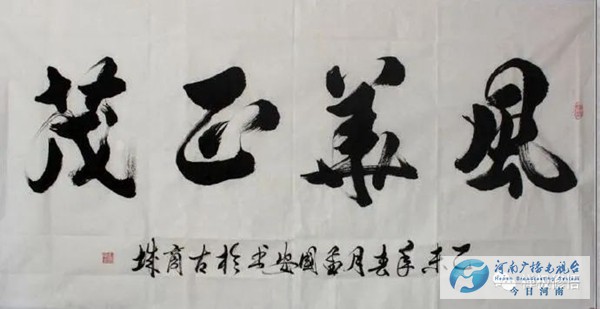 風華正茂
乙未年春月孟國安书於古商城
河南广播电视台
今日河南